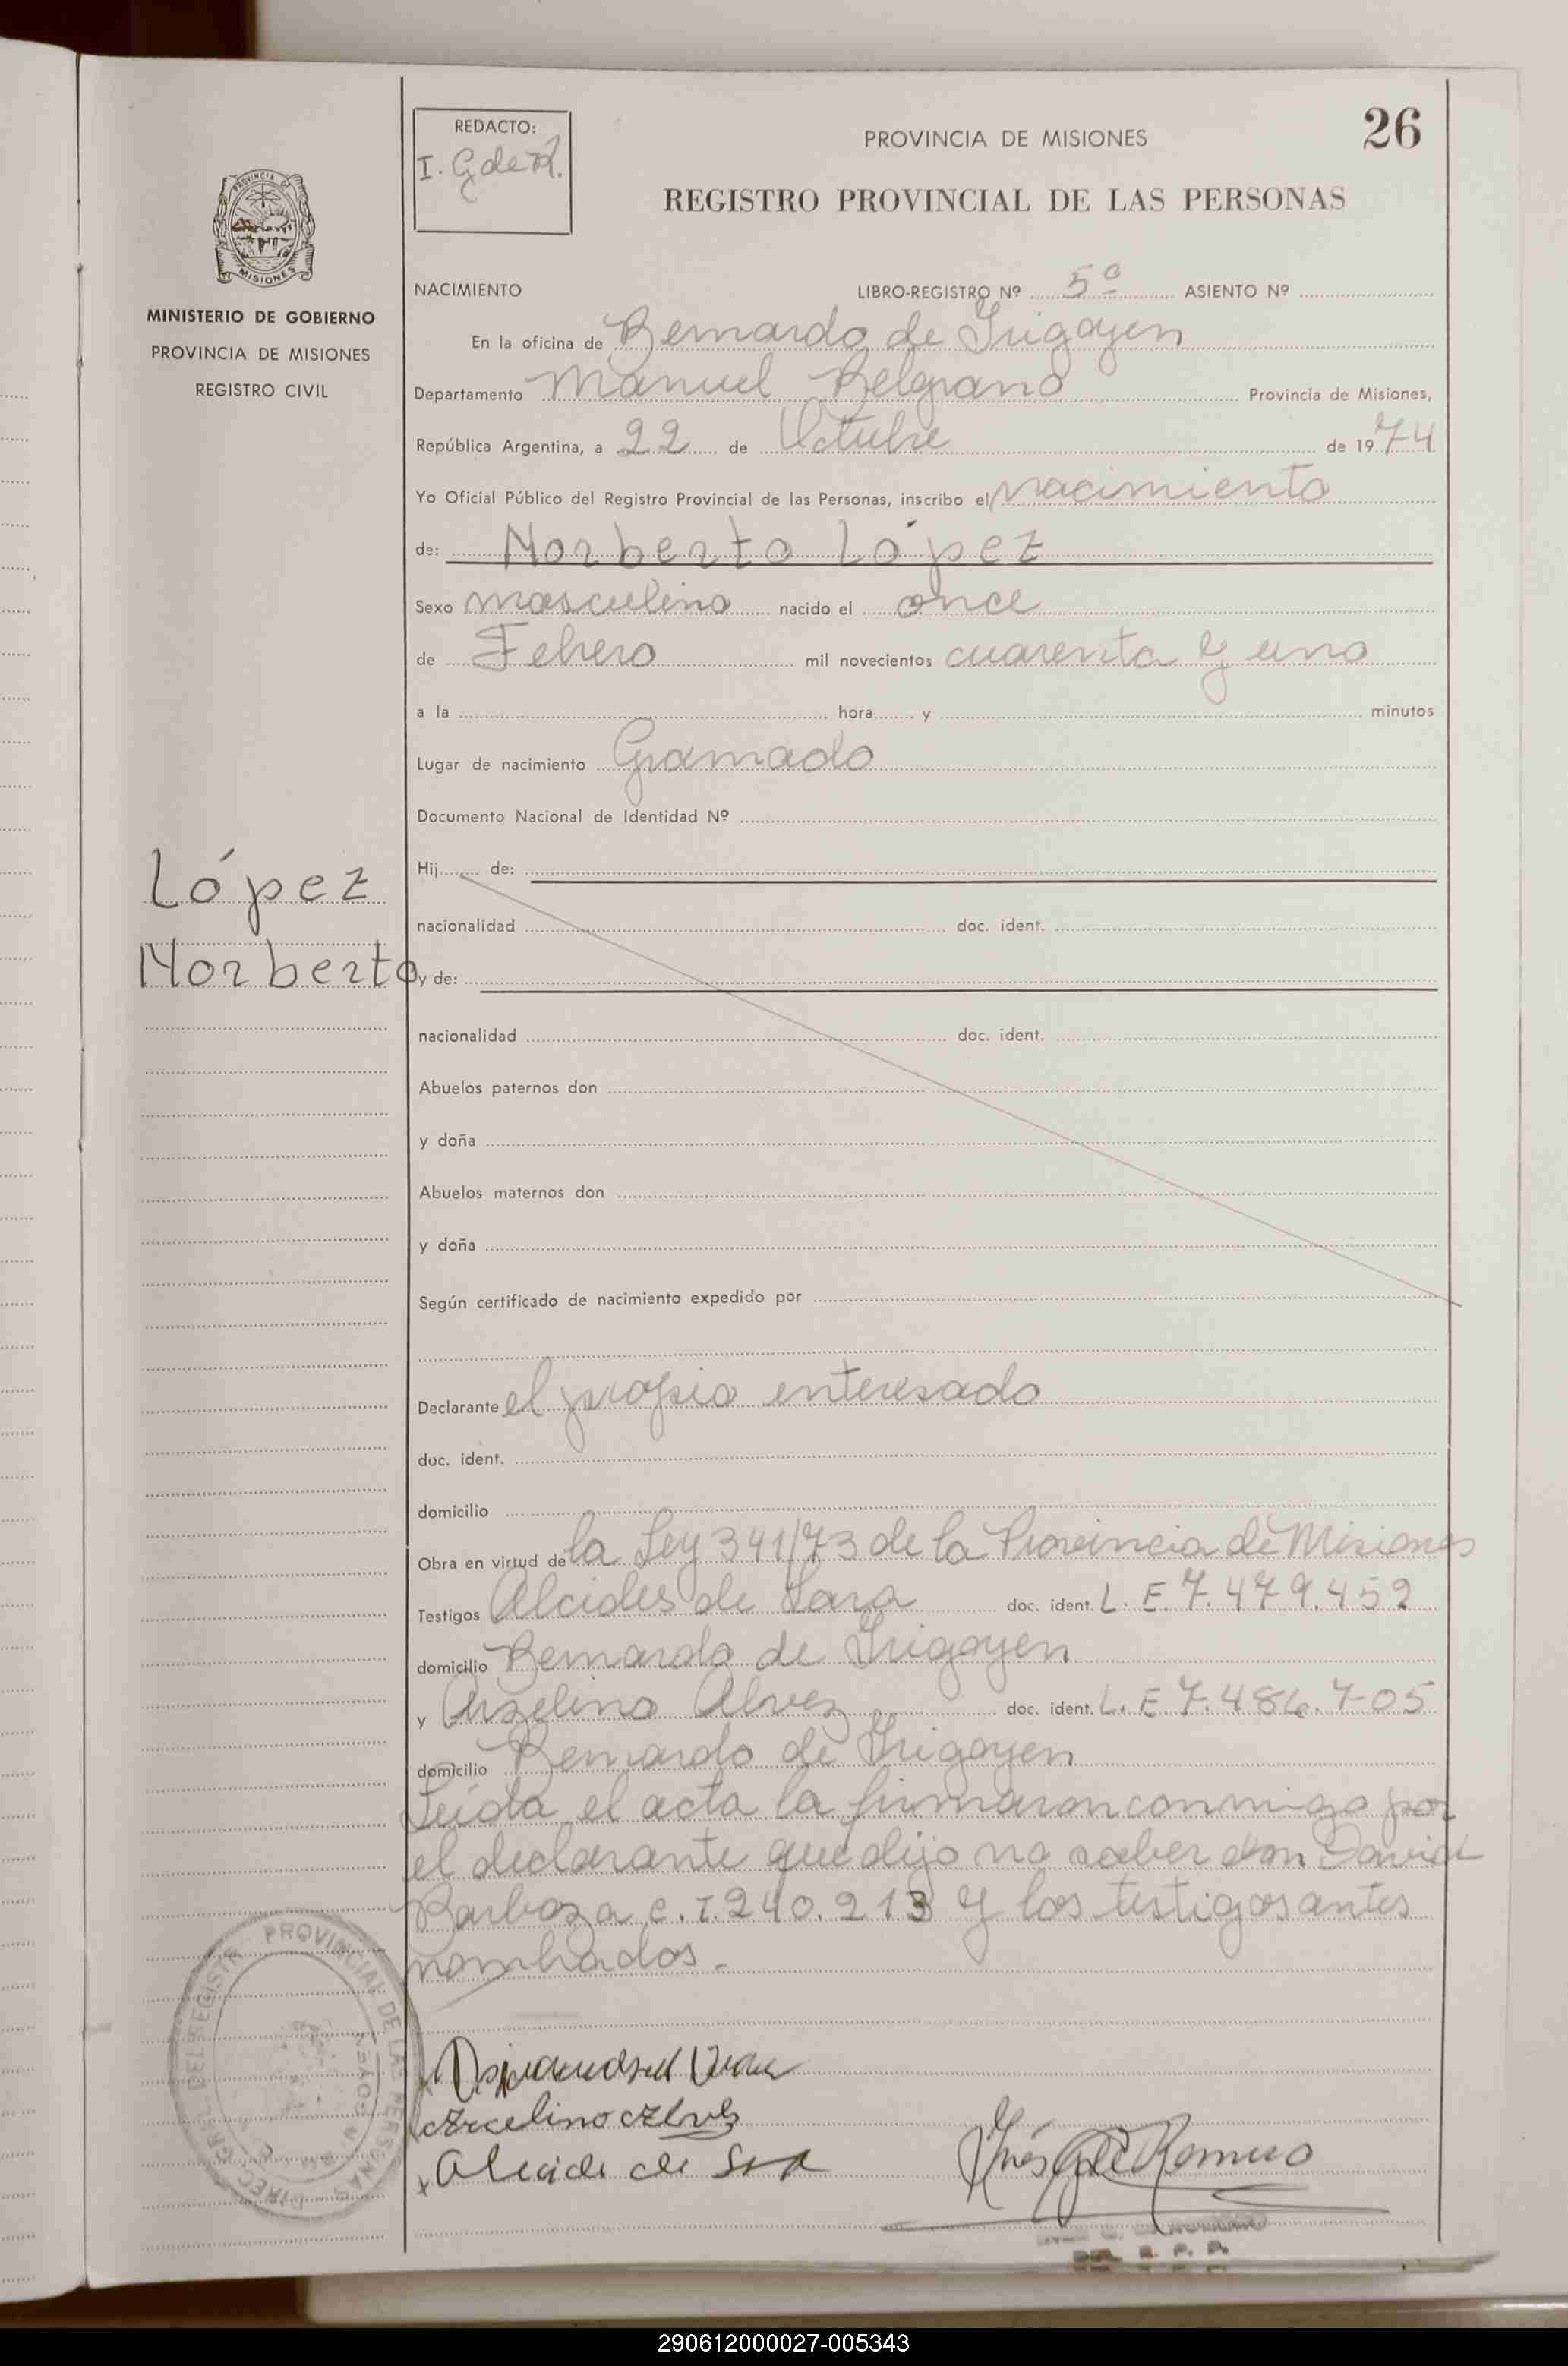 26
REDACTO:
I. G de R.
PROVINCIA DE MISIONES
REGISTRO PROVINCIAL DE LAS PERSONAS
PROVINCIA DE
MISIONES
MINISTERIO DE GOBIERNO
PROVINCIA DE MISIONES
REGISTRO CIVIL
NACIMIENTO LIBRO-REGISTRO Nº 5º ASIENTO Nº
En la oficina de Bernardo de Irigoyen
Departamento Manuel Belgrano Provincia de Misiones,
República Argentina, a 22 de Octubre de 1974
Yo Oficial Público del Registro Provincial de las Personas, inscribo el nacimiento
de: Norberto López
Sexo masculino nacido el once
de Febrero mil novecientos cuarenta y uno
a la hora y minutos
Lugar de nacimiento Gramado
Documento Nacional de Identidad Nº
Hij de:
López
nacionalidad doc. ident.
Norberto
y de:
nacionalidad doc. ident.
Abuelos paternos don
y doña
Abuelos maternos don
y doña
Según certificado de nacimiento expedido por
Declarante el propio enteresado
doc. ident.
domicilio
Obra en virtud de la Ley 341/73 de la Provincia de Misiones
Testigos Alcides de Lara doc. ident. L. E. 7.479.452
domicilio Bernardo de Irigoyen
y Arzelino Alvez doc. ident. L. E 7.486.705
domicilio Bernardo de Irigoyen
Leída el acta la firmaron conmigo por
el declarante que dijo no saber don David
Barboza c. I. 240.213 y los testigos antes
nombrados.
DIREC. GRAL. DEL REGISTR PROVINCIAL DE LAS PERSONAS
Arcelino Alves
Alcide de
Inés G de Romero
DEL R. P. P.
290612000027-005343